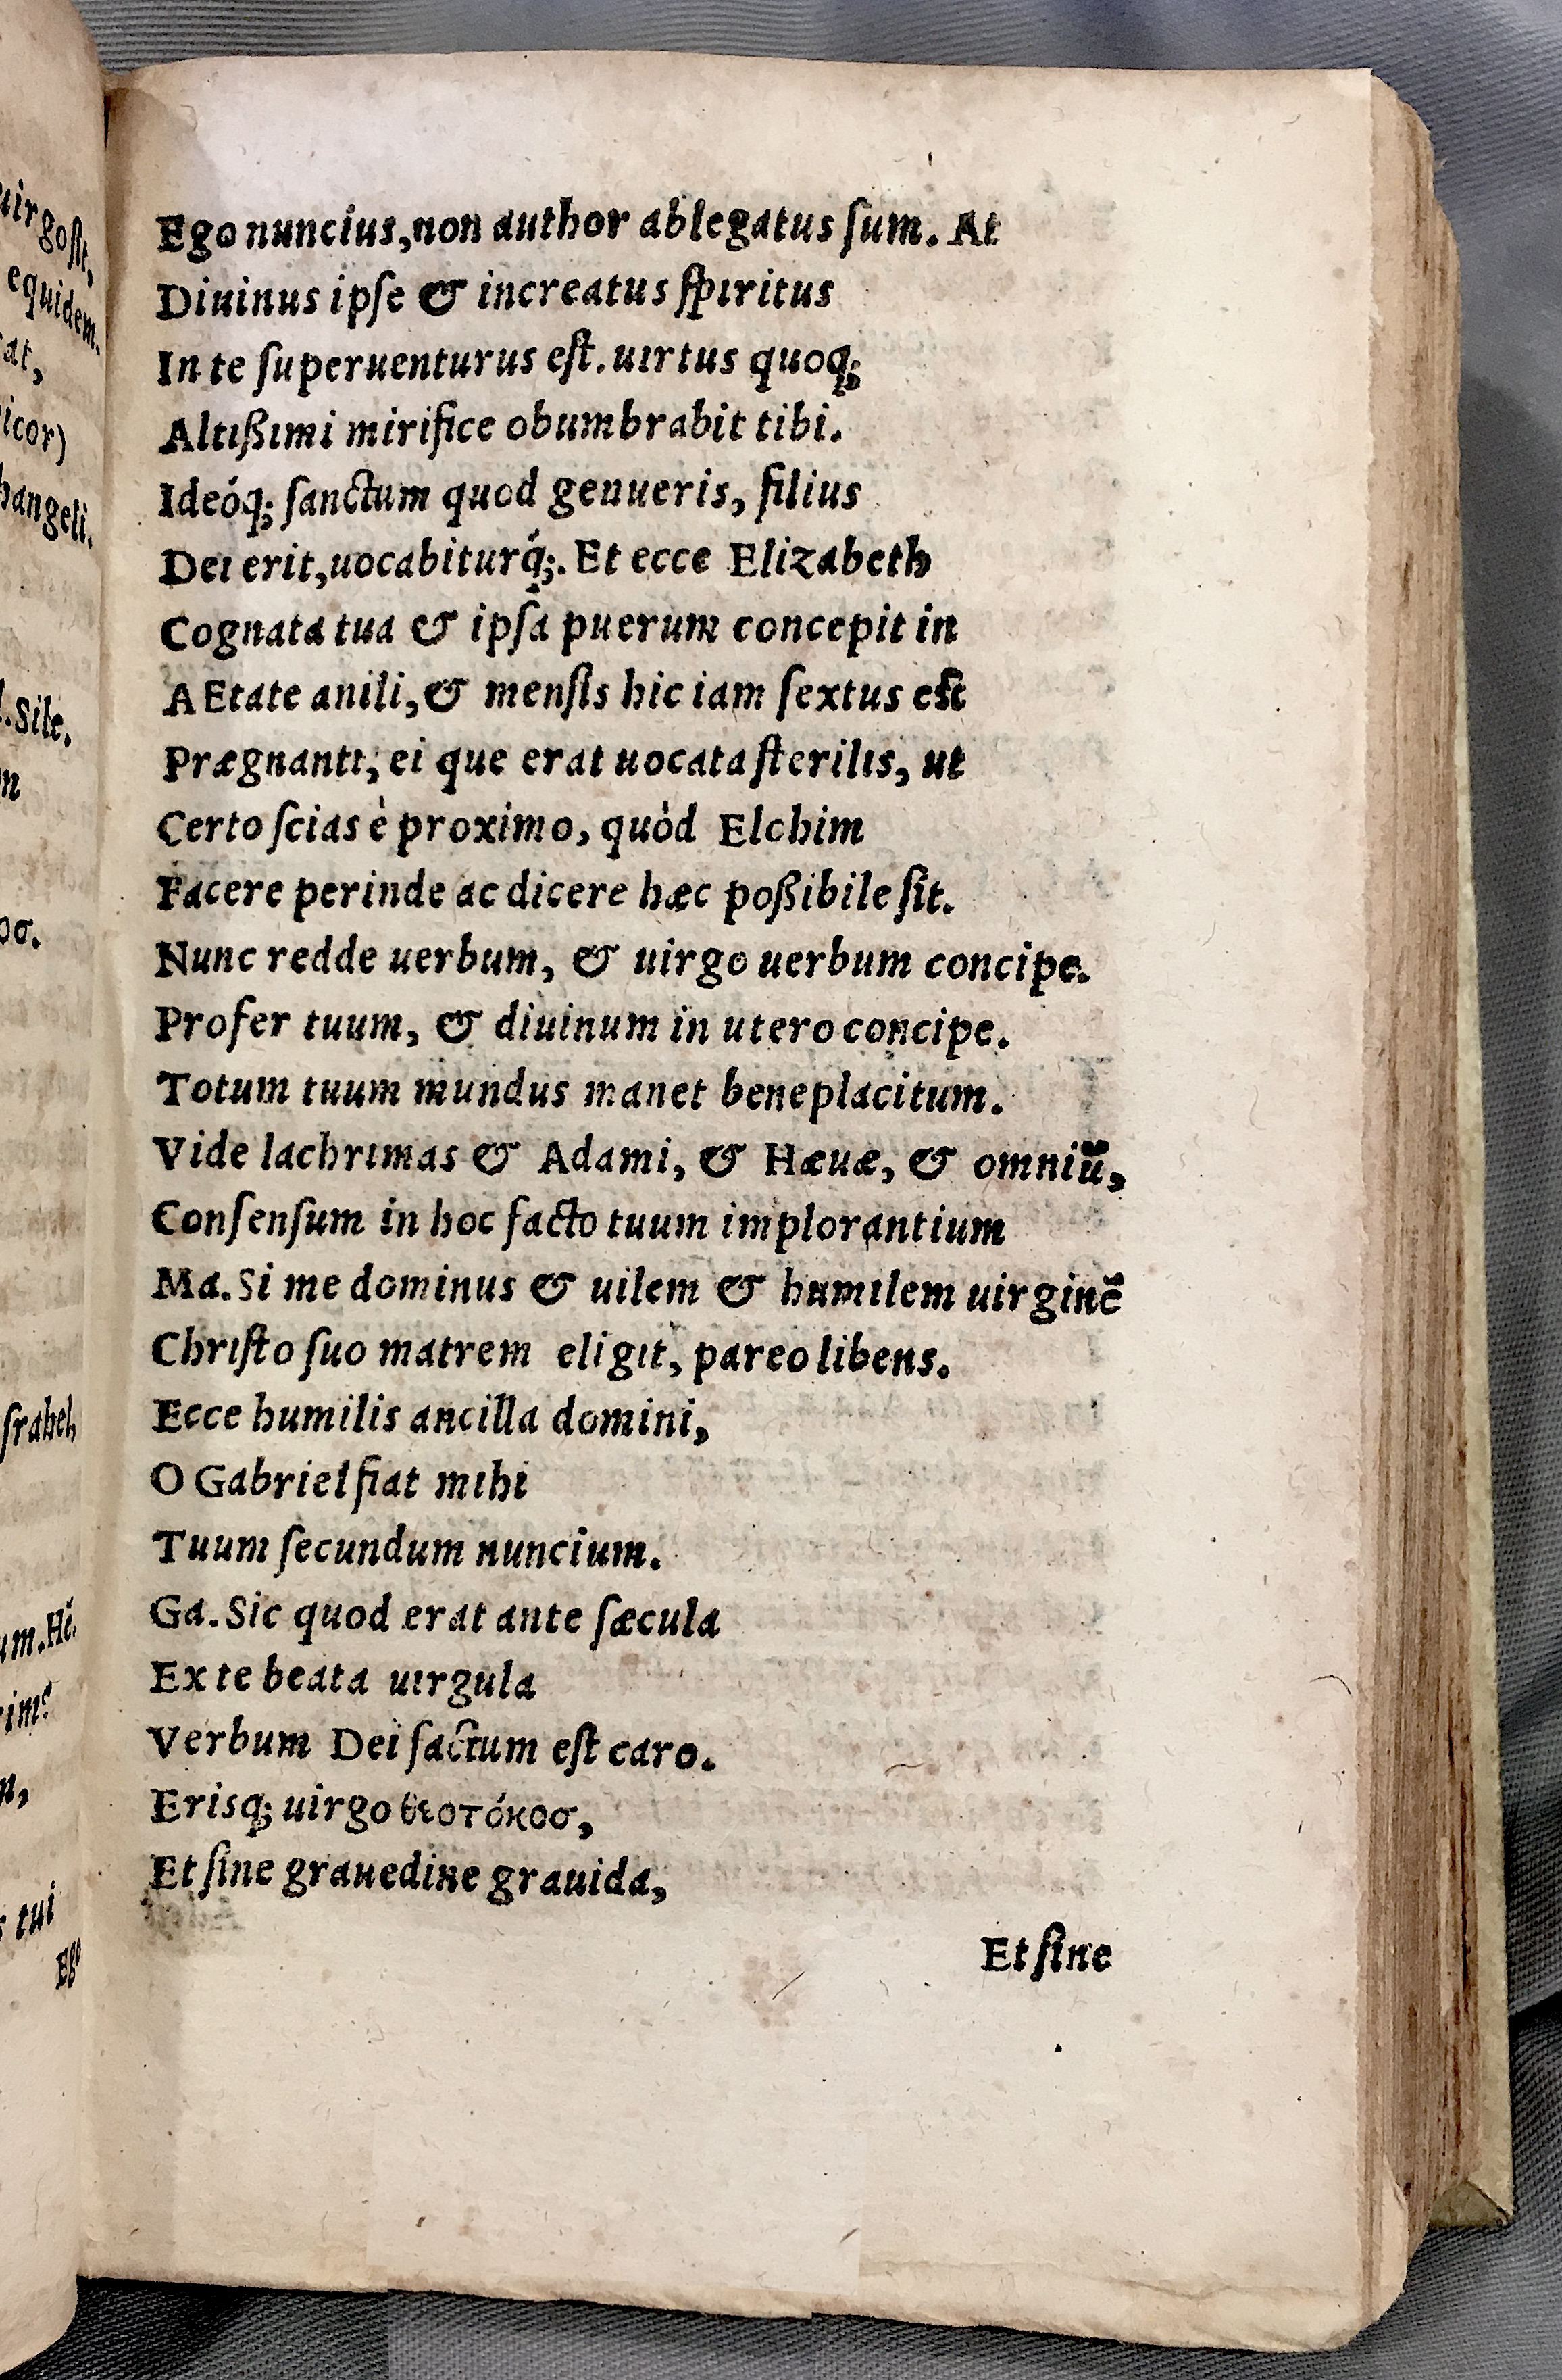 Ego nuncius, non author ablegatus ſum. At
Diuinus ipſe & increatus ſpiritus
In te ſuperuenturus eſt. uirtus quoq;
Altißimi mirifice obumbrabit tibi.
Ideóq; ſanctum quod genueris, filius
Dei erit, uocabiturq́;. Et ecce Elizabeth
Cognata tua & ipſa puerum concepit in
AEtate anili, & menſis hic iam ſextus eſt
Prægnanti, ei que erat uocata ſterilis, ut
Certo ſcias è proximo, quòd Elohim
Facere perinde ac dicere hæc poßibile ſit.
Nunc redde uerbum, & uirgo uerbum concipe.
Profer tuum, & diuinum in utero concipe.
Totum tuum mundus manet beneplacitum.
Vide lachrimas & Adami, & Hæuæ, & omniū,
Conſenſum in hoc facto tuum implorantium
Ma. Si me dominus & uilem & humilem uirginē
Chriſto ſuo matrem eligit, pareo libens.
Ecce humilis ancilla domini,
O Gabriel fiat mihi
Tuum ſecundum nuncium.
Ga. Sic quod erat ante ſæcula
Ex te beata uirgula
Verbum Dei factum eſt caro.
Erisq; uirgo θεοτόκοσ,
Et ſine grauedine grauida,
Et ſine
uirgoſt,
equidem.
hangeli.
Sile.
ſrahel,
tui
Ego